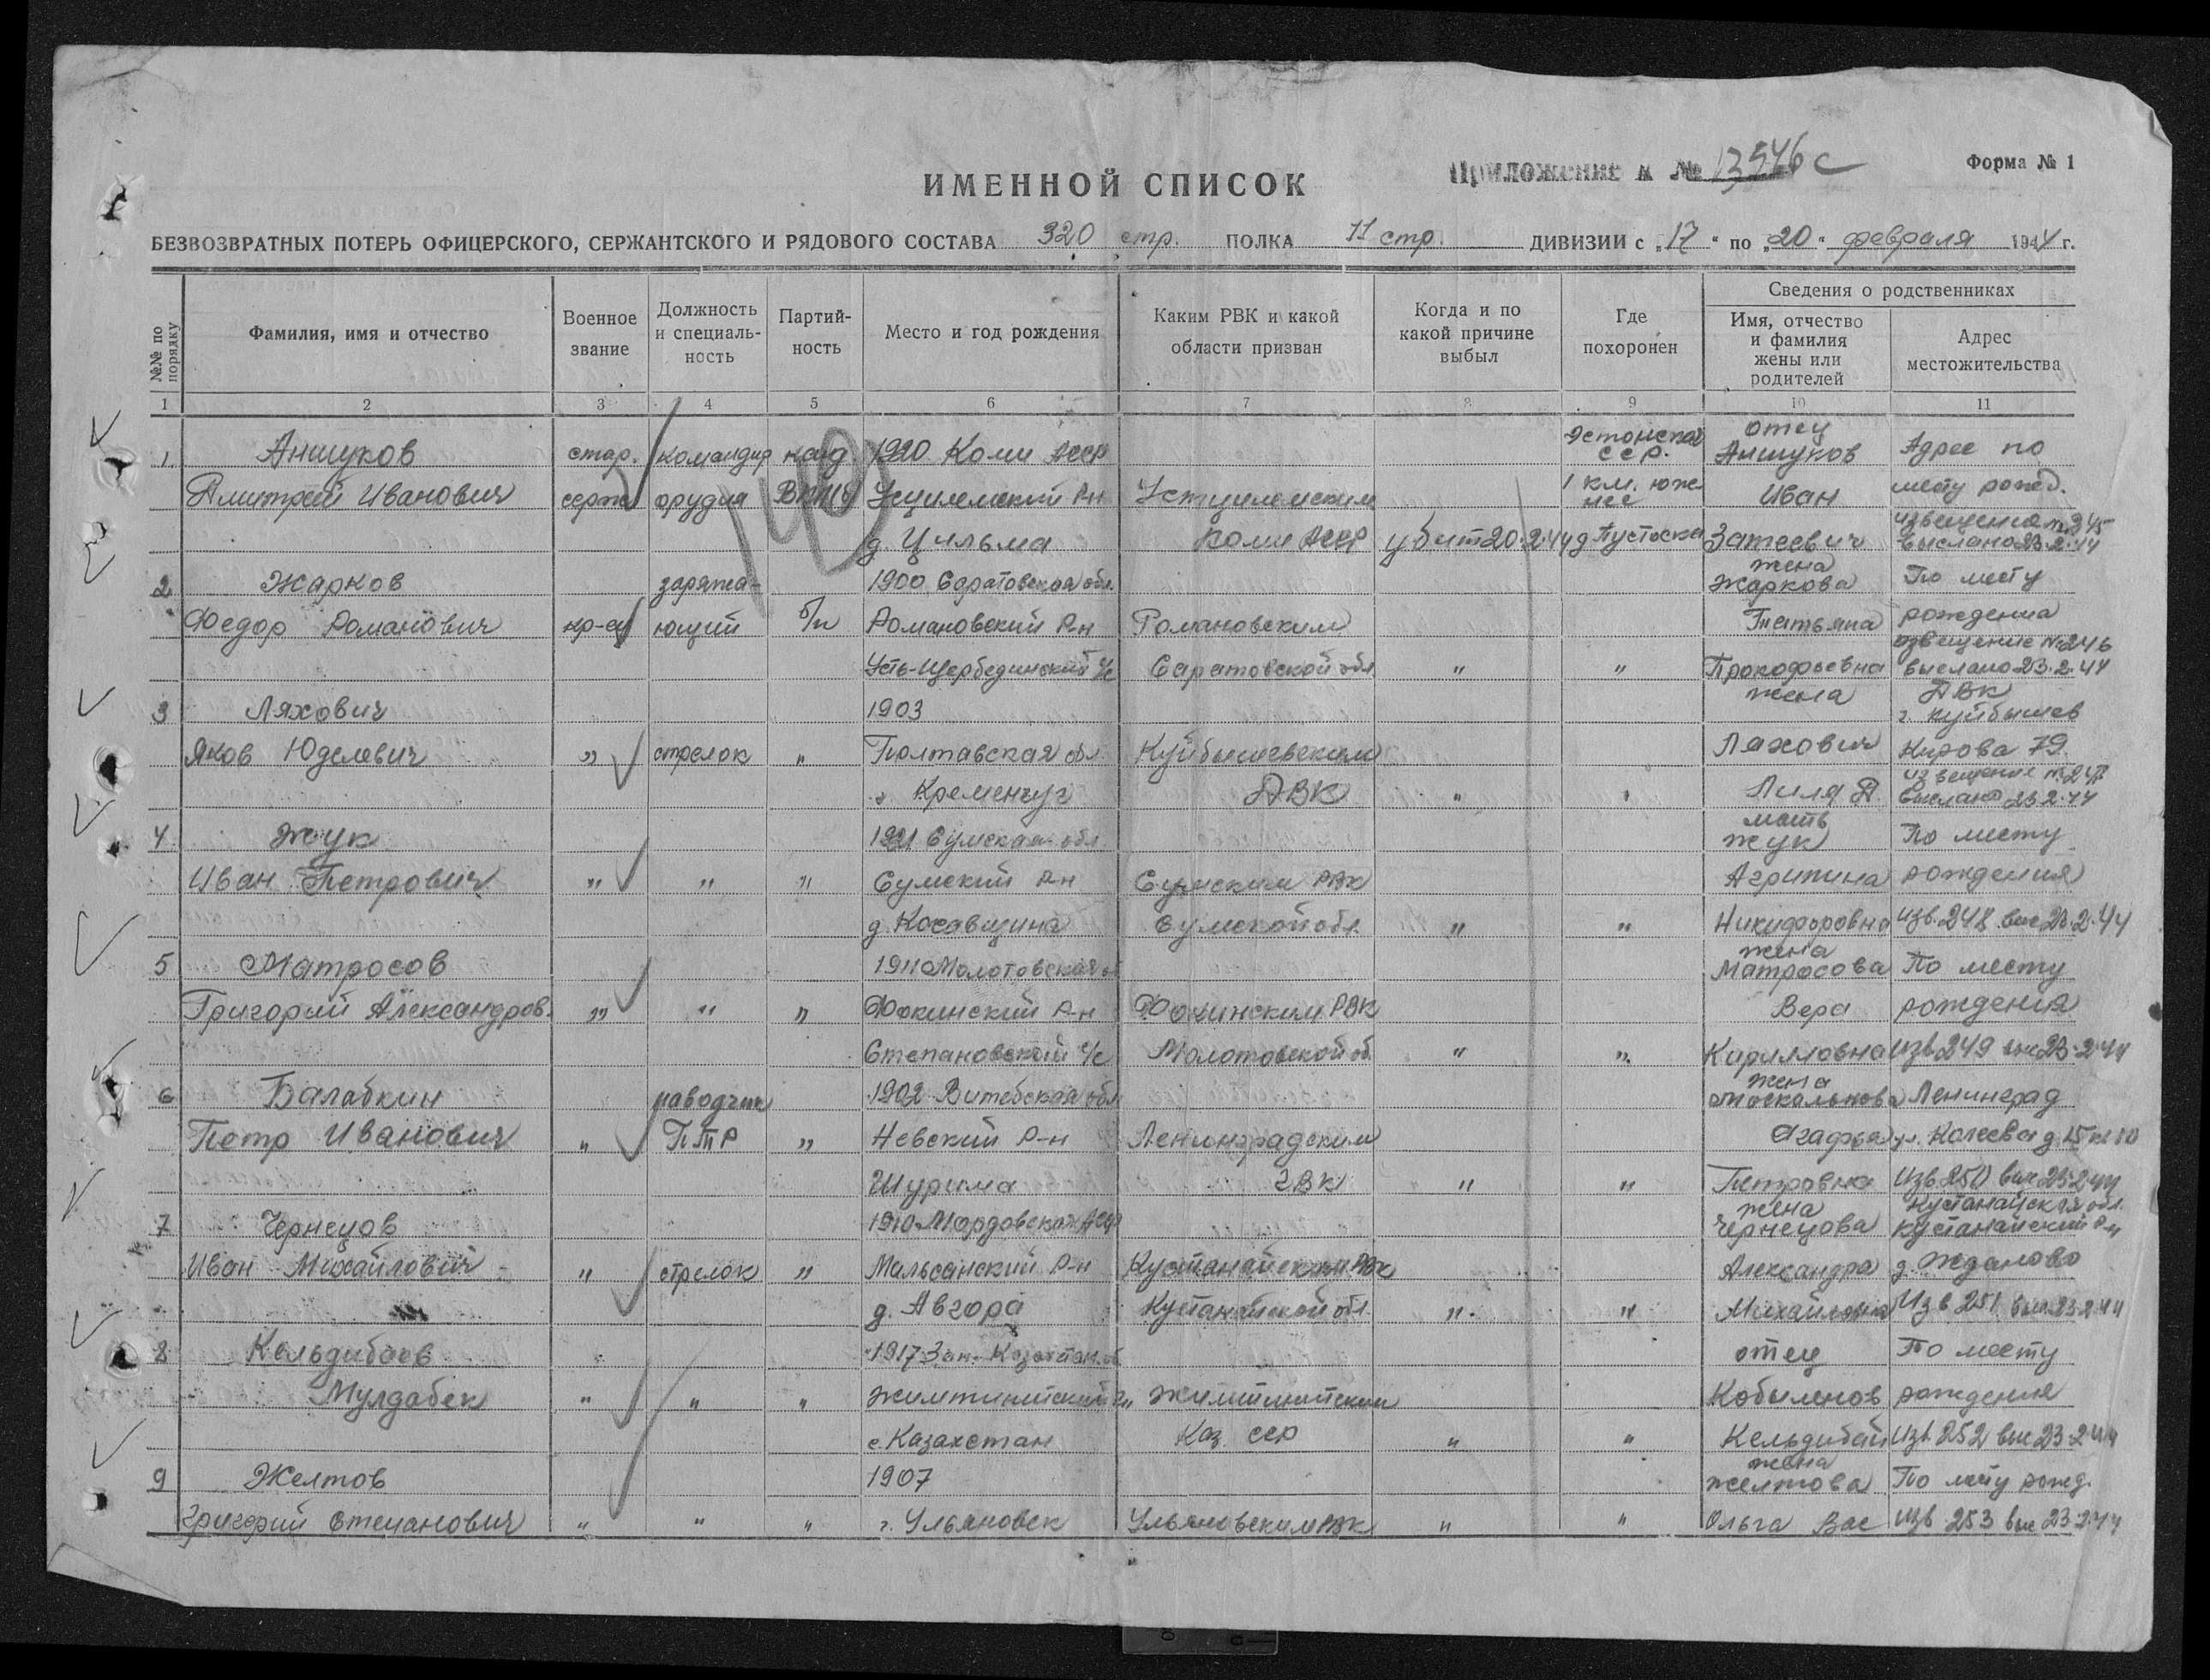 ИМЕННОЙ СПИСОК
Приложение к № 13546с
Форма № 1
БЕЗВОЗВРАТНЫХ ПОТЕРЬ ОФИЦЕРСКОГО, СЕРЖАНТСКОГО И РЯДОВОГО СОСТАВА 320 стр. ПОЛКА 11 стр. ДИВИЗИИ с „17“ по „20“ февраля 1944 г.
№№ по порядку
Фамилия, имя и отчество
Военное звание
Должность и специаль-
ность
Партий-
ность
Место и год рождения
Каким РВК и какой
области призван
Когда и по
какой причине
выбыл
Где
похоронен
Сведения о родственниках
Имя, отчество
и фамилия
жены или
родителей
Адрес
местожительства
1 2 3 4 5 6 7 8 9 10 11
Эстонская отец
1 Аншуков стар. командир канд. 1920 Коми АССР ССР. Аншуков Адрес по
Дмитрий Иванович серж орудия ВКПб Усцилемский р-н Устцилемским 1 км. юж- Иван месту рожд.
нее извещение № 245
д. Цильма Коми АССР убит 20.2.44 д Пустоска Затеевич выслано 23.2.44
жена
2 Жарков заряжа- 1900 Саратовская обл. Жаркова По месту
Федор Романович кр-ец ющий б/п Романовский р-н Романовским Татьяна рождения
извещение № 246
Усть-Щербединский с/с Саратовской обл " " Прокофьевна выслано 23.2.44
жена ДВК
3 Ляхович 1903 г. Куйбышев
Яков Юделевич " стрелок " Полтавская обл. Куйбышевским Ляхович Кирова 79
извещение № 247
г. Кременчуг ДВК " " Лиля Д. выслано 23.2.44
мать
4 Жук 1921 Сумская обл. Жук По месту
Иван Петрович " " " Сумский р-н Сумским РВК Агрипина рождения
д. Косавщина Сумской обл. " " Никифоровна изв. 248 выс 23.2.44
жена
5 Матросов 1911 Молотовская об Матросова По месту
Григорий Александров. " " " Фокинский р-н Фокинским РВК Вера рождения
Степановский с/с Молотовской об. " " Кирилловна изв 249 выс 23.2.44
жена
6 Балабкин наводчик 1902 Витебская обл Ленинград
Петр Иванович " ПТР " Невский р-н Ленинградским Агафья
Шурима ГВК " " Петровна Изв 250 выс 23.2.44
жена Кустанайская обл.
7 Чернецов 1910 Мордовская АССР Чернецова Кустанайский р-н
Иван Михайлович " стрелок " Мальсанский р-н Кустанайским РВК Александра д. Жданово
д. Авгора Кустанайской обл. " " Михайловна Изв 251 выс 23.2.44
8 Кельдибаев 1917 Зап. Казахстан. об отец По месту
Мулдабек " " " Жимпитинский рождения
с. Казахстан Каз ССР " " Кельдибай Изв 252 выс 23.2.44
жена
9 Желтов 1907 Желтова По месту рожд.
Григорий Степанович " " " г. Ульяновск Ульяновским РВК " " Ольга Вас Изв 253 выс 23.2.44